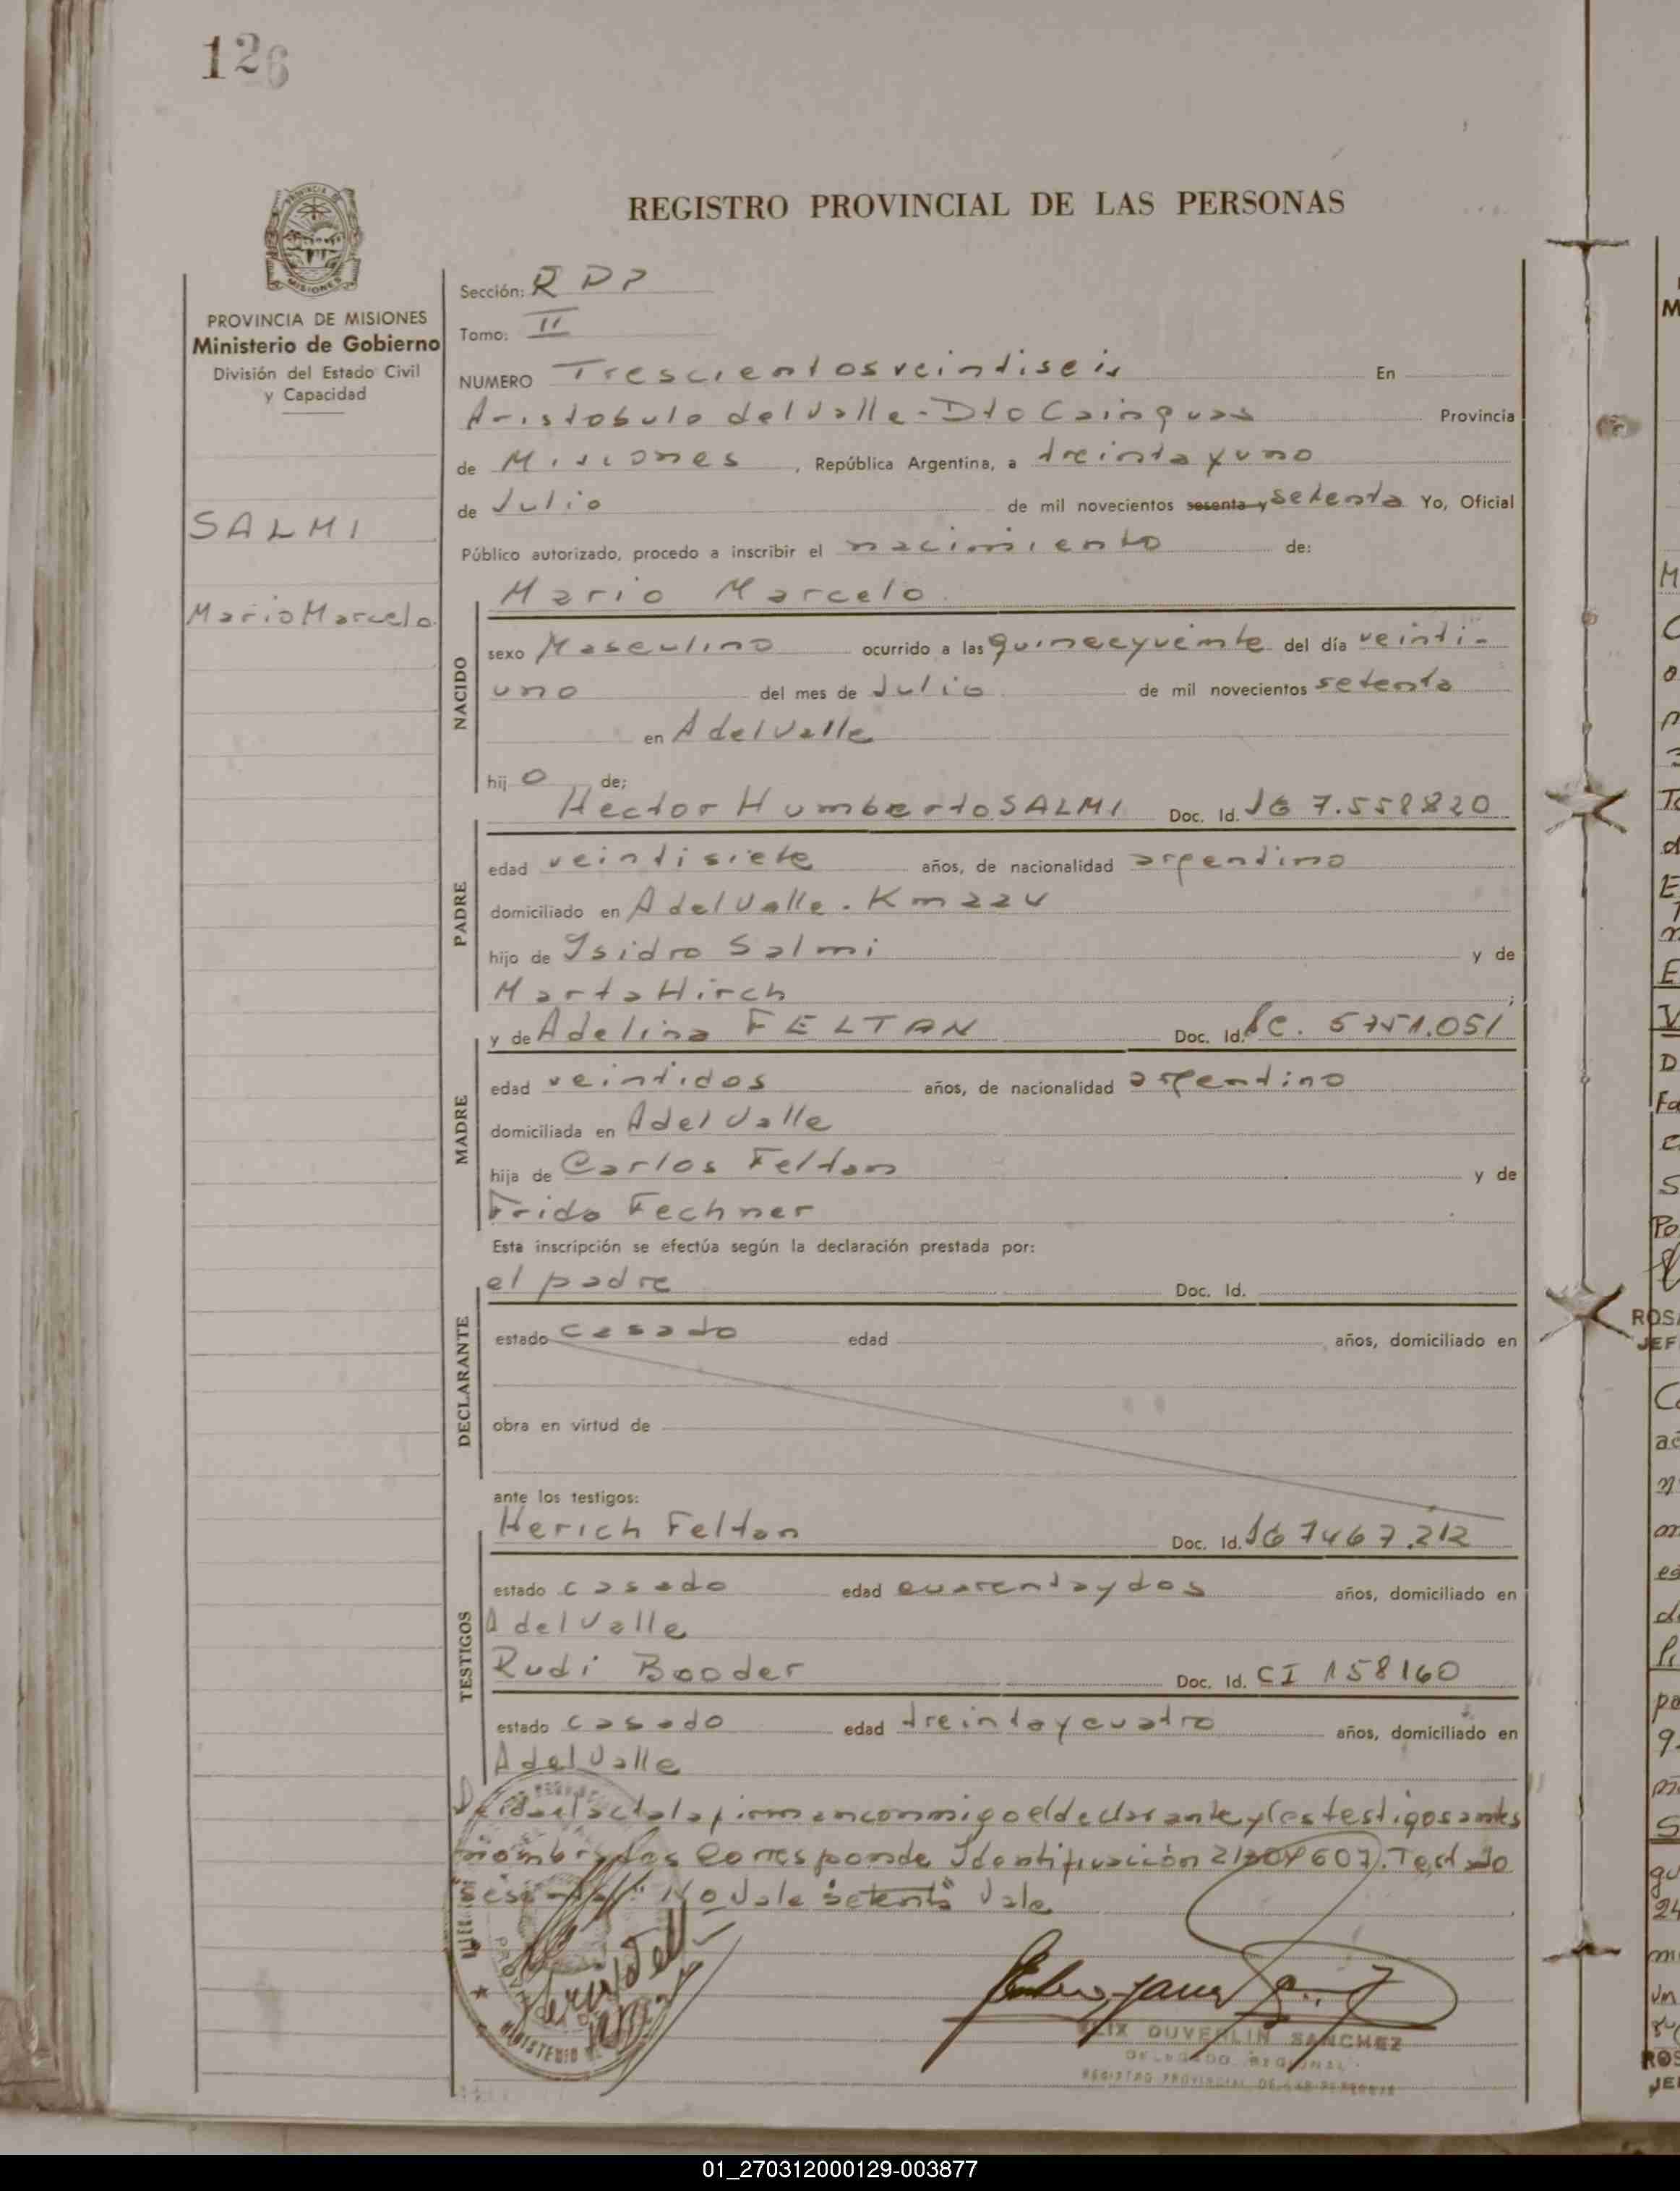 126
REGISTRO PROVINCIAL DE LAS PERSONAS
PROVINCIA DE MISIONES
Ministerio de Gobierno
División del Estado Civil
y Capacidad
SALMI
Mario Marcelo
Sección: RDP
Tomo: II
NUMERO Trescientos veintiseis En
Aristobulo del Valle - Dto Cainguas Provincia
de Misiones, República Argentina, a treinta y uno
de Julio de mil novecientos sesenta y setenta Yo, Oficial
Público autorizado, procedo a inscribir el nacimiento de:
Mario Marcelo
NACIDO
sexo Masculino ocurrido a las quince y veinte del día veinti-
uno del mes de Julio de mil novecientos setenta
en A del Valle
hij o de;
Hector Humberto SALMI Doc. Id. 7.558820
PADRE
edad veintisiete años, de nacionalidad argentino
domiciliado en A del Valle. Km 224
hijo de Isidro Salmi y de
Marta Hirch;
y de Adelina FELTAN Doc. Id. LC. 5751.051
MADRE
edad veintidos años, de nacionalidad argentino
domiciliada en A del Valle
hija de Carlos Feltan y de
Frida Fechner
Esta inscripción se efectúa según la declaración prestada por:
el padre Doc. Id.
DECLARANTE
estado casado edad años, domiciliado en
obra en virtud de
ante los testigos:
Herich Feltan Doc. Id. 7467.212
TESTIGOS
estado casado edad cuarenta y dos años, domiciliado en
A del Valle
Rudi Booder Doc. Id. CI 158160
estado casado edad treinta y cuatro años, domiciliado en
A del Valle
Leida el acta la firman conmigo el declarante y los testigos antes
nombrados Corresponde Identificación 607. Testado
"sesenta y" No Vale "setenta" Vale
FELIX DUVERLIN SANCHEZ
DELEGADO REGIONAL
REGISTRO PROVINCIAL DE LAS PERSONAS
01_270312000129-003877